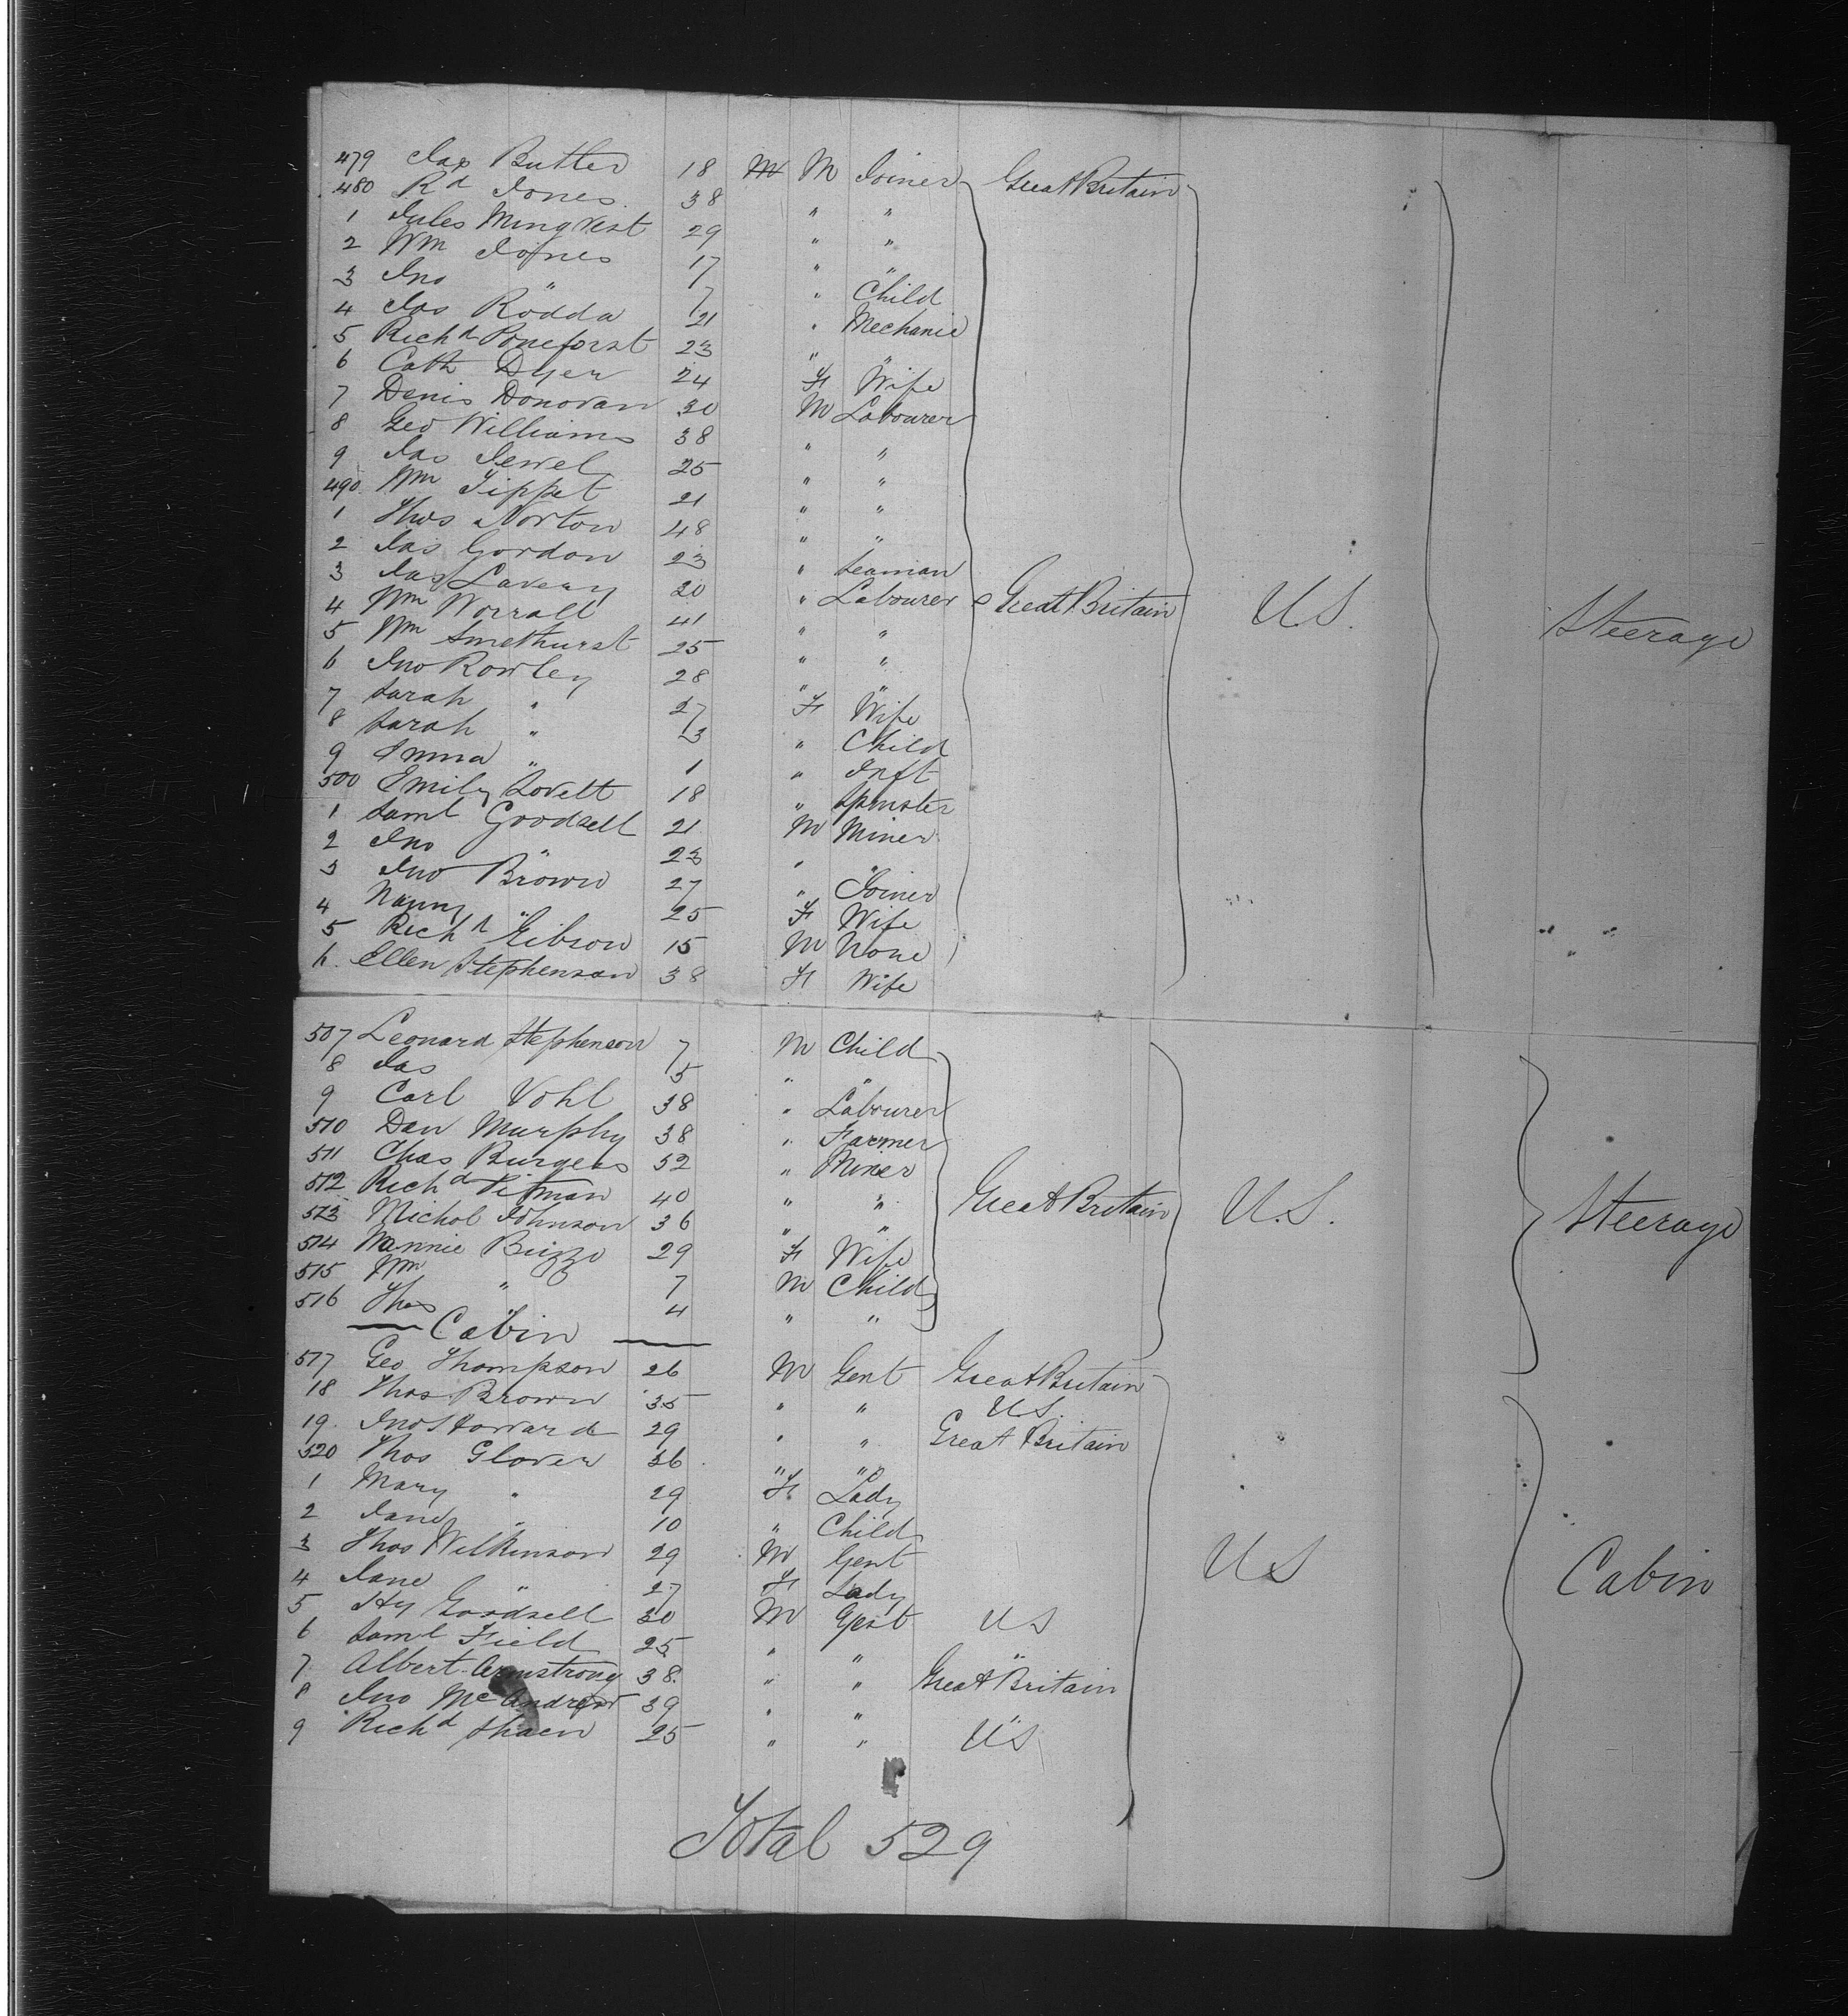 479 Jas Butler 18 M M Joiner Great Britain
480 Rd Jones 38 " "
1 Jules Mingvest 29 " "
2 Wm Jones 17 " "
3 Jno " 7 " Child
4 Jas Rodda 21 " Mechanic
5 Richd Poneforst 23 " "
6 Cath Dyer 24 F Wife
7 Denis Donovan 30 M Labourer
8 Geo Williams 38 " "
9 Jas Jewel 25 " "
490 Wm Tippet 21 " "
1 Thos Norton 48 " "
2 Jas Gordon 23 " Seaman
3 Jas Lavery 20 " Labourer Great Britain U.S. Steerage
4 Wm Worrall 41 " "
5 Wm Smethurst 25 " "
6 Jno Rowley 28 " "
7 Sarah " 27 F Wife
8 Sarah " 3 " Child
9 Emma " 1 " Inft
500 Emily Lovett 18 " Spinster
1 Saml Goodsell 21 M Miner
2 Jno " 23 " "
3 Jno Brown 27 " Joiner
4 Nanny " 25 F Wife
5 Richd Gibson 15 M None
6 Ellen Stephenson 38 F Wife
507 Leonard Stephenson 7 M Child
8 Jas 5 " "
9 Carl Vohl 38 " Labourer
510 Dan Murphy 38 " Farmer
511 Chas Burgess 52 " Miner
512 Richd Pitman 40 " " Great Britain U.S. Steerage
513 Michol Johnson 36 " "
514 Nannie Buzzo 29 F Wife
515 Wm " 7 M Child
516 Thos " 4 " "
Cabin
517 Geo Thompson 26 M Gent Great Britain
18 Thos Brown 35 " " U.S.
19 Jno Howard 29 " " Great Britain
520 Thos Glover 36 " " "
1 Mary " 29 F Lady
2 Jane " 10 " Child
3 Thos Wilkinson 29 M Gent U S Cabin
4 Jane " 27 F Lady
5 Hy Goodsell 30 M Gent U S
6 Saml Field 25 " " "
7 Albert Armstrong 38 " " Great Britain
8 Jno McAndrew 39 " " "
9 Richd Shaen 25 " " U S
Total 529